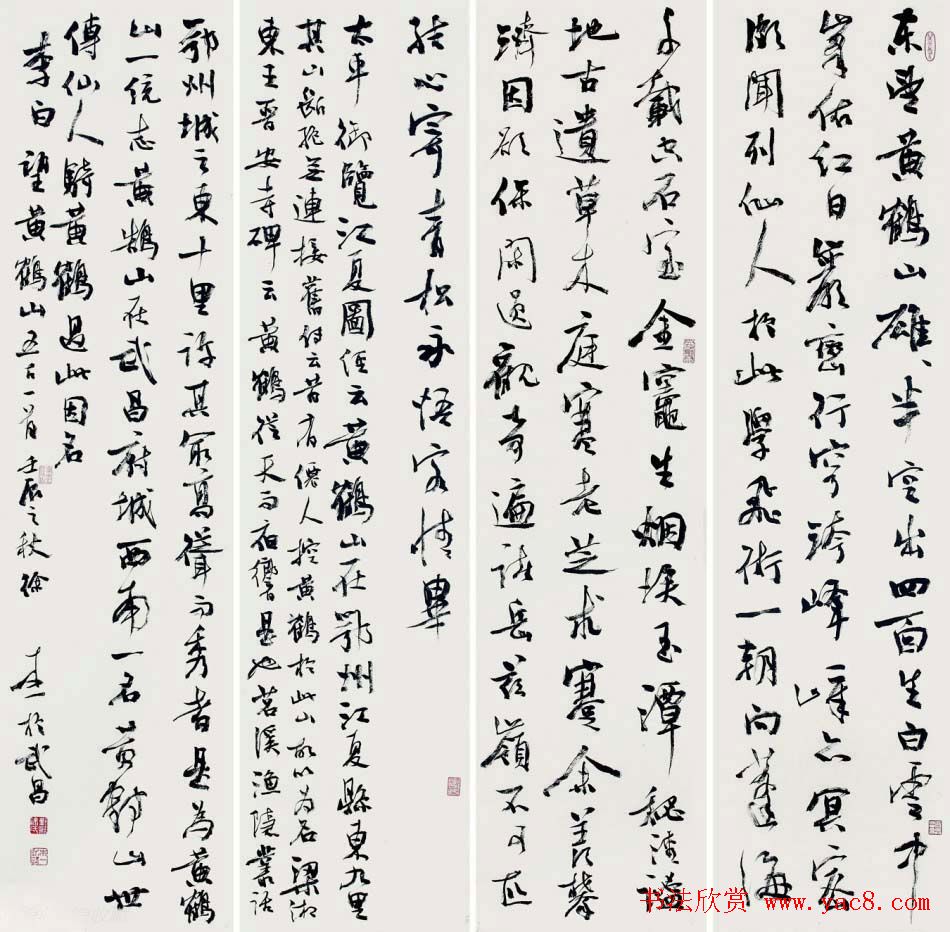 东望黄鶴山雄、半空出四面生白雲中
峯倚红日巖峦行穹跨峰嶂亦冥密
颇聞列仙人於此學飛術一朝向蓬海
千載空石室金竈生烟埃玉潭秘清謐
地古遺草木庭寒老芝术蹇余羡攀
隮因欲保閑逸觀奇遍诸岳兹嶺不可匹
结心寄青松永悟客情畢
太平御覽江夏圖经云黄鶴山在鄂州江夏縣東九里
其山斷絶无連接舊傳云昔有僊人控黄鶴於此山故以为名梁湘
東王晋安寺碑云黄鶴從天而夜響是也苕溪渔隐叢話
鄂州城之東十里許其最高聳而秀者是為黄鶴
山一统志黄鵠山在武昌府城西南一名黄鹤山世
傳仙人騎黄鶴過此因名
李白望黄鶴山五古一首 壬辰之秋徐
於武昌
书法欣赏 www.yac8.com